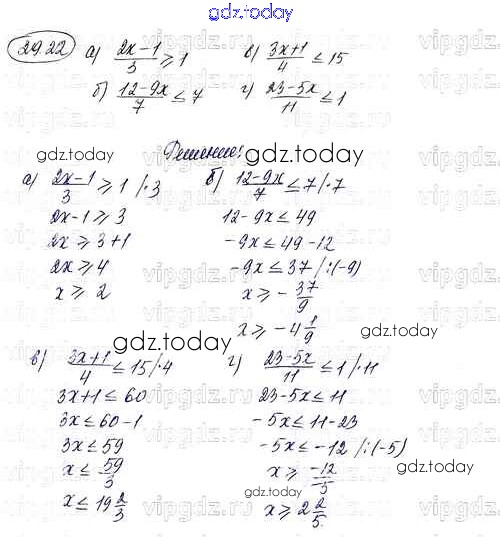 gdz.today
29.22 а) (2x-1)/3 ≥ 1 в) (3x+1)/4 ≤ 15
б) (12-9x)/7 ≤ 7 г) (23-5x)/11 ≤ 1
Решение:
gdz.today gdz.today
а) (2x-1)/3 ≥ 1 /·3
2x-1 ≥ 3
2x ≥ 3+1
2x ≥ 4
x ≥ 2
б) (12-9x)/7 ≤ 7 /·7
12-9x ≤ 49
-9x ≤ 49-12
-9x ≤ 37 /:(-9)
x ≥ -37/9
x ≥ -4 1/9
gdz.today
в) (3x+1)/4 ≤ 15 /·4
3x+1 ≤ 60
3x ≤ 60-1
3x ≤ 59
x ≤ 59/3
x ≤ 19 2/3
г) (23-5x)/11 ≤ 1 /·11
23-5x ≤ 11
-5x ≤ 11-23
-5x ≤ -12 /:(-5)
x ≥ -12/5
x ≥ 2 2/5
gdz.today
gdz.today
vipgdz.ru